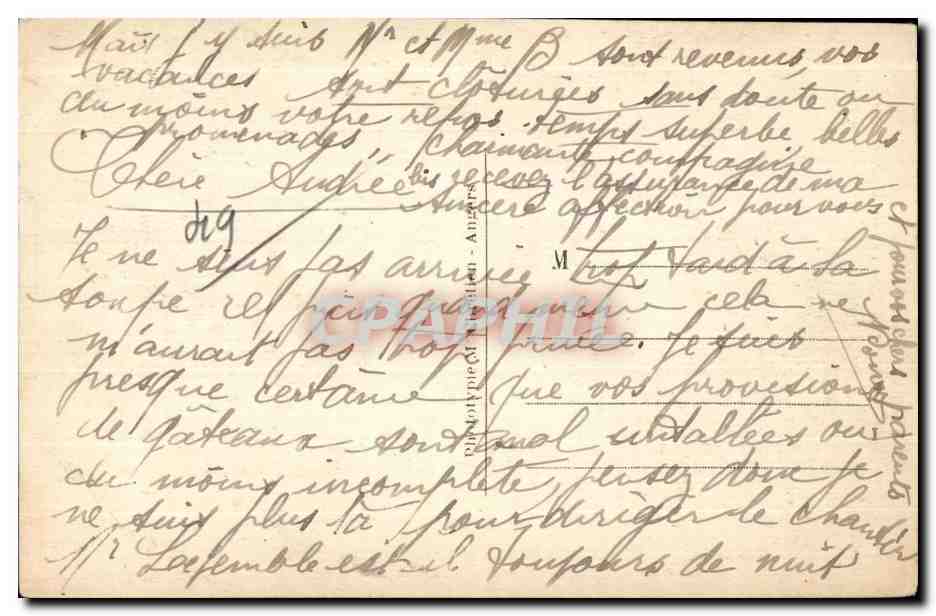 Mais j'y suis Mr et Mme B sont revenus, vos
vacances sont clôturées sans doute ou
du moins votre repos. temps superbe belles
promenades, charmante compagnie
Chère Andrée
recevez l'assurance de ma
sincère affection pour vous
et pour vos chers parents
49
Je ne suis pas arrivée trop tard à la
soupe et puis quand même cela ne
m'aurait pas trop privée. Je suis
presque certaine que vos provisions
de gâteaux sont mal installées ou
du moins incomplète, pensez donc je
ne suis plus là pour diriger le chantier
Mr est-il toujours de nuit
M
Phototypie M. Angers
CPAPHIL